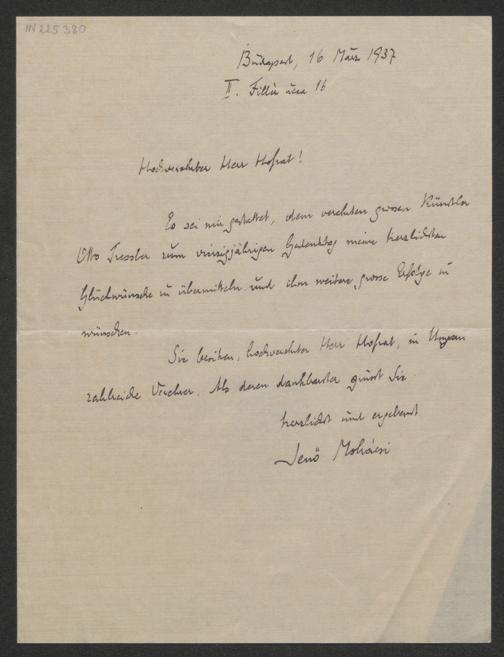 IN 225380
Budapest, 16 März 1937
II. Fillér utca 16
Hochverehrter Herr Hofrat!
Es sei mir gestattet, dem verehrten grossen Künstler
Otto Tressler zum vierzigjährigen Gedenktag meine herzlichsten
Glückwünsche zu übermitteln und ihm weitere grosse Erfolge zu
wünschen.
Sie besitzen, hochverehrter Herr Hofrat, in Ungarn
zahlreiche Verehrer. Als deren dankbarster grüsst Sie
herzlichst und ergebenst
Jenö Mohácsi